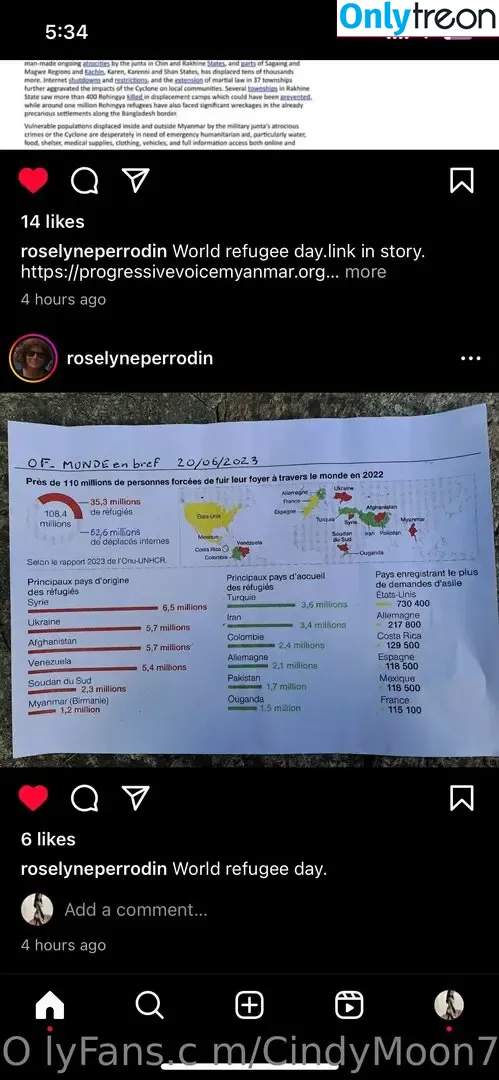 5:34
Onlytreon
man-made ongoing atrocities by the junta in Chin and Rakhine States, and parts of Sagaing and
Magwe Regions and Kachin, Karen, Karenni and Shan States, has displaced tens of thousands
more. Internet shutdowns and restrictions, and the extension of martial law in 37 townships
further aggravated the impacts of the Cyclone on local communities. Several townships in Rakhine
State saw more than 400 Rohingya killed in displacement camps which could have been prevented,
while around one million Rohingya refugees have also faced significant wreckages in the already
precarious settlements along the Bangladesh border.
Vulnerable populations displaced inside and outside Myanmar by the military junta's atrocious
crimes or the Cyclone are desperately in need of emergency humanitarian aid, particularly water,
food, shelter, medical supplies, clothing, vehicles, and full information access both online and
14 likes
roselyneperrodin World refugee day.link in story.
https://progressivevoicemyanmar.org... more
4 hours ago
roselyneperrodin
OF_ MUNDE en bref 20/06/2023
Près de 110 millions de personnes forcées de fuir leur foyer à travers le monde en 2022
108,4
millions
35,3 millions
de réfugiés
62,6 millions
de déplacés internes
Selon le rapport 2023 de l'Onu-UNHCR.
États-Unis
Mexique
Costa Rica
Colombie
Venezuela
Allemagne
France
Espagne
Ukraine
Turquie
Syrie
Afghanistan
Iran
Pakistan
Myanmar
Soudan
du Sud
Ouganda
Principaux pays d'origine
des réfugiés
Syrie
6,5 millions
Ukraine
5,7 millions
Afghanistan
5,7 millions
Venezuela
5,4 millions
Soudan du Sud
2,3 millions
Myanmar (Birmanie)
1,2 million
Principaux pays d'accueil
des réfugiés
Turquie
3,6 millions
Iran
3,4 millions
Colombie
2,4 millions
Allemagne
2,1 millions
Pakistan
1,7 million
Ouganda
1,5 million
Pays enregistrant le plus
de demandes d'asile
États-Unis
730 400
Allemagne
217 800
Costa Rica
129 500
Espagne
118 500
Mexique
118 500
France
115 100
6 likes
roselyneperrodin World refugee day.
Add a comment...
4 hours ago
O lyFans.c m/CindyMoon7